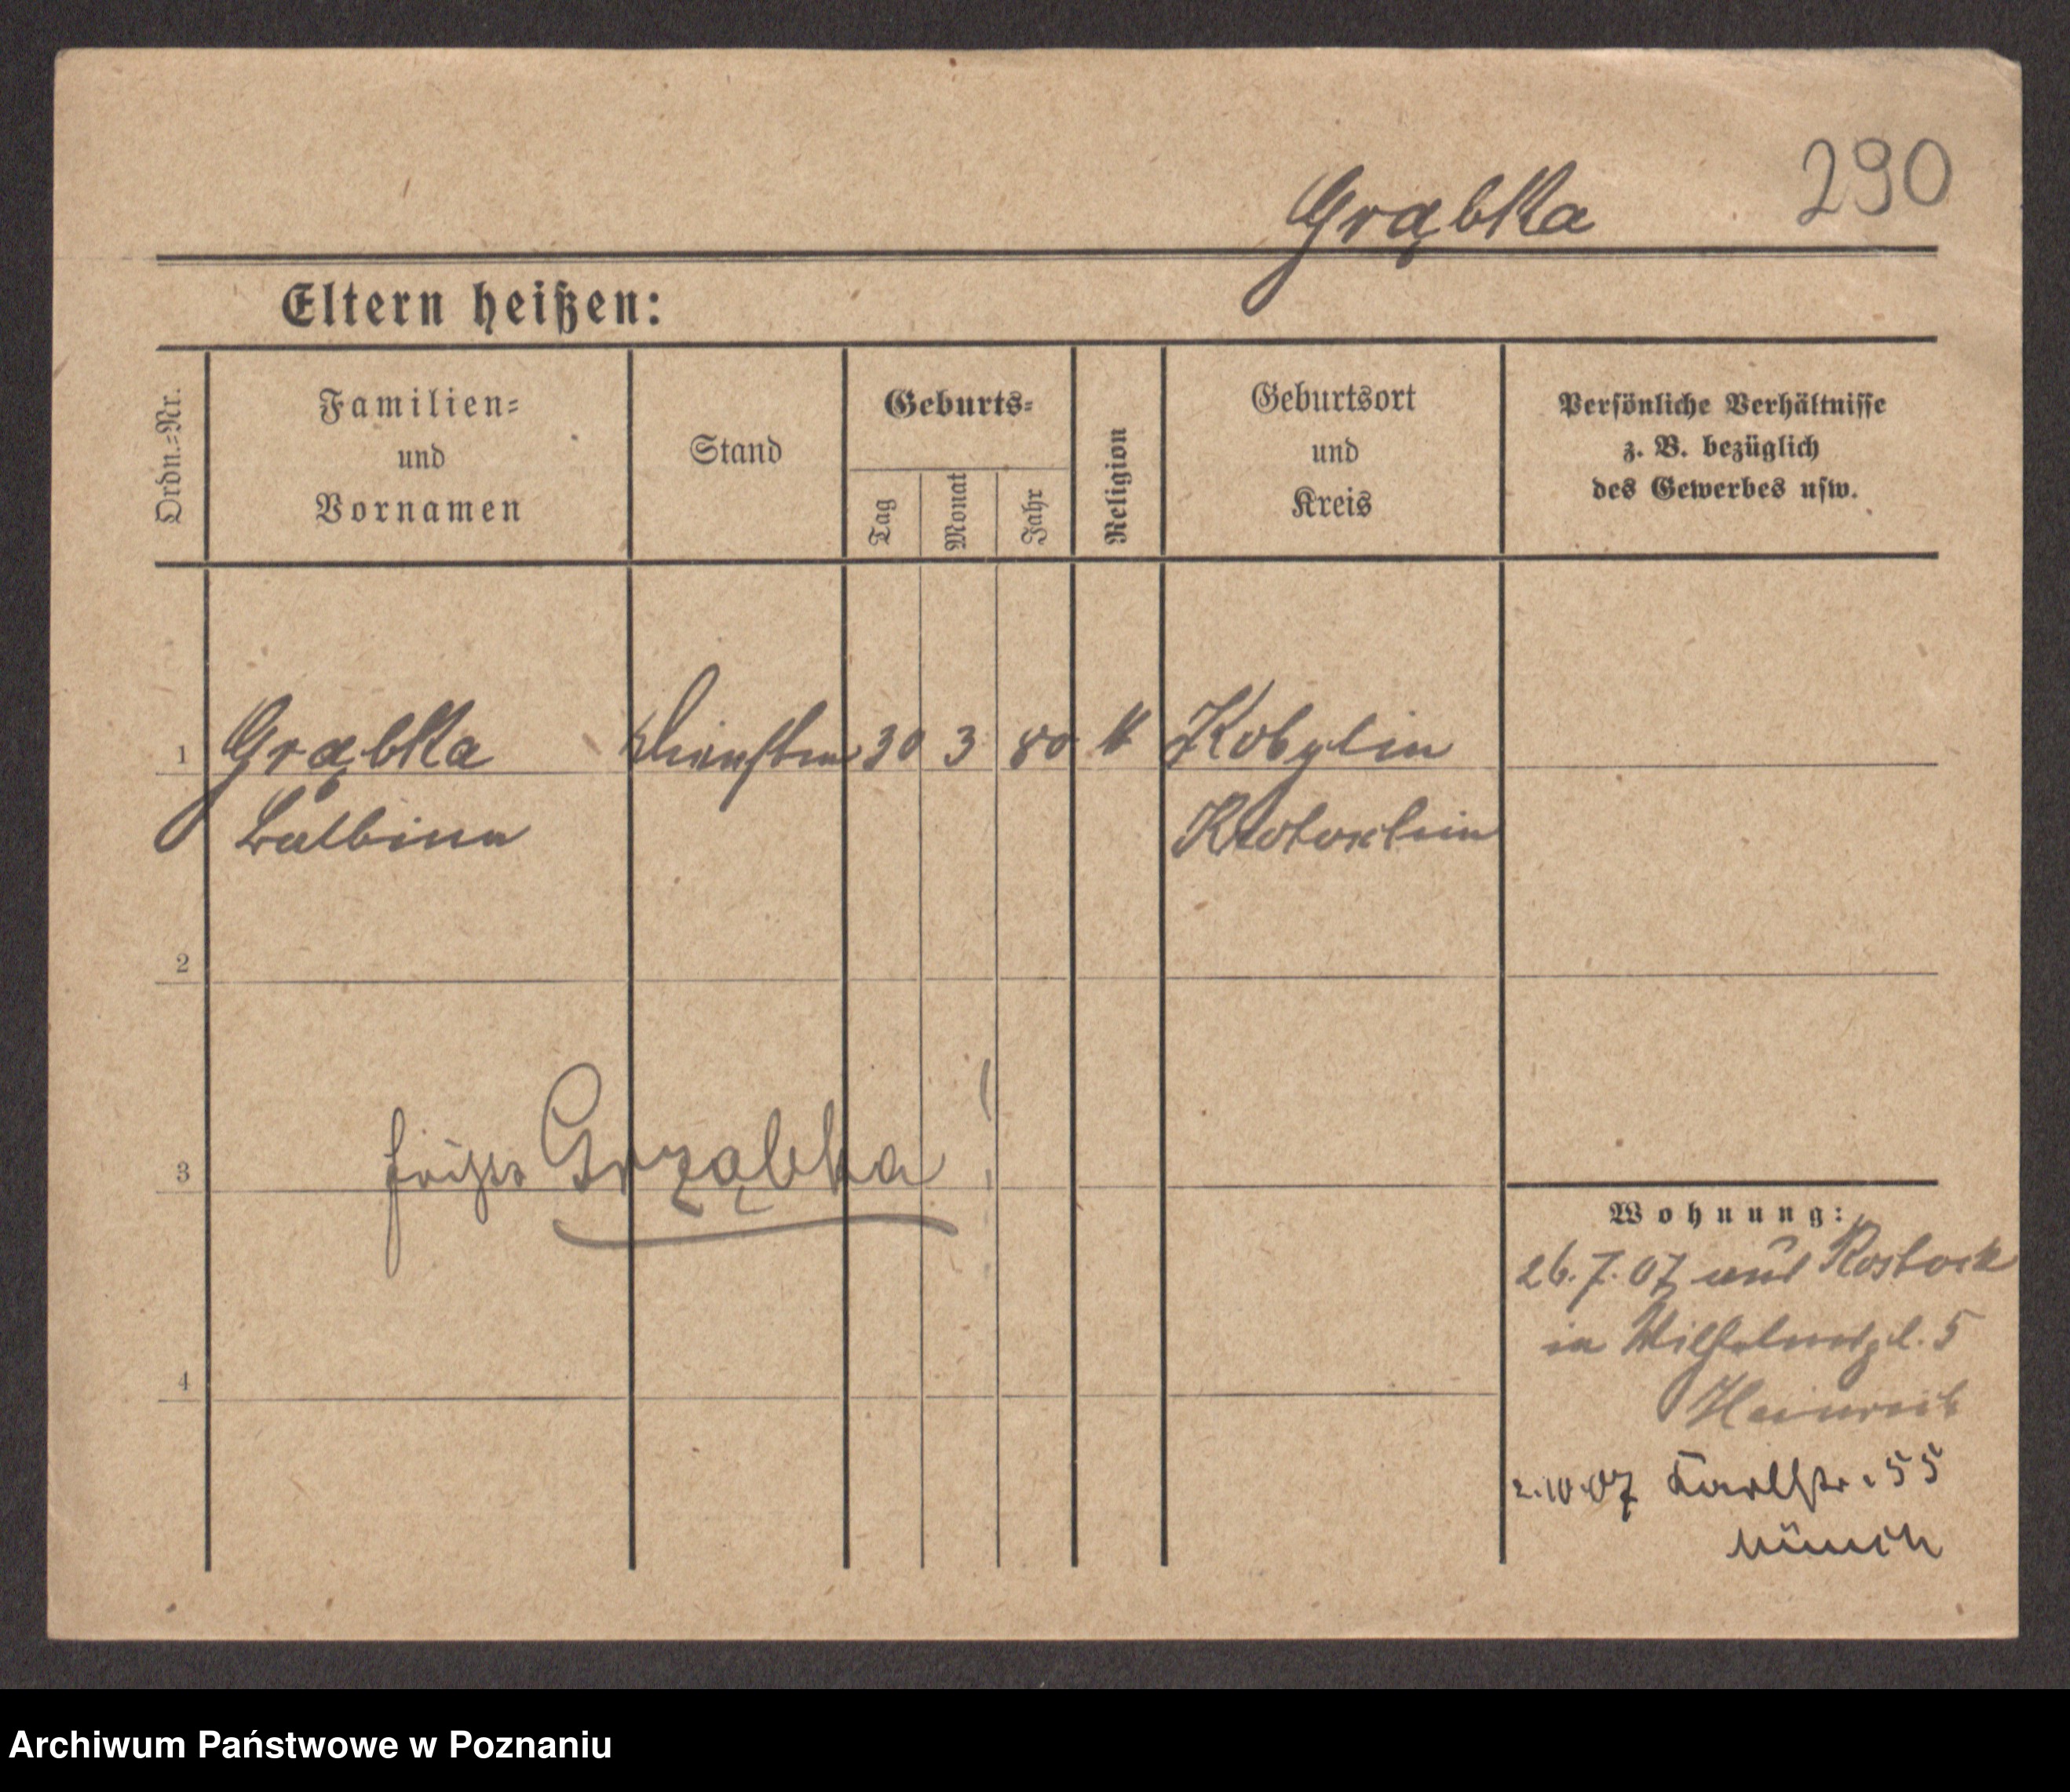 290
Grąbka
Eltern heißen:
Ordn.=Nr.
Familien=
und
Vornamen
Stand
Geburts=
Tag
Monat
Jahr
Religion
Geburtsort
und
Kreis
Persönliche Verhältnisse
z. B. bezüglich
des Gewerbes usw.
1 Grąbka 30 3 80 k Kobylin
Balbina Krotoschin
2
3 Grząbka !
4
Wohnung:
26.7.07 aus Rostock
in Wilhelmspl. 5
Heinrich
2.10.07 Karlstr. 55
Münch
Archiwum Państwowe w Poznaniu